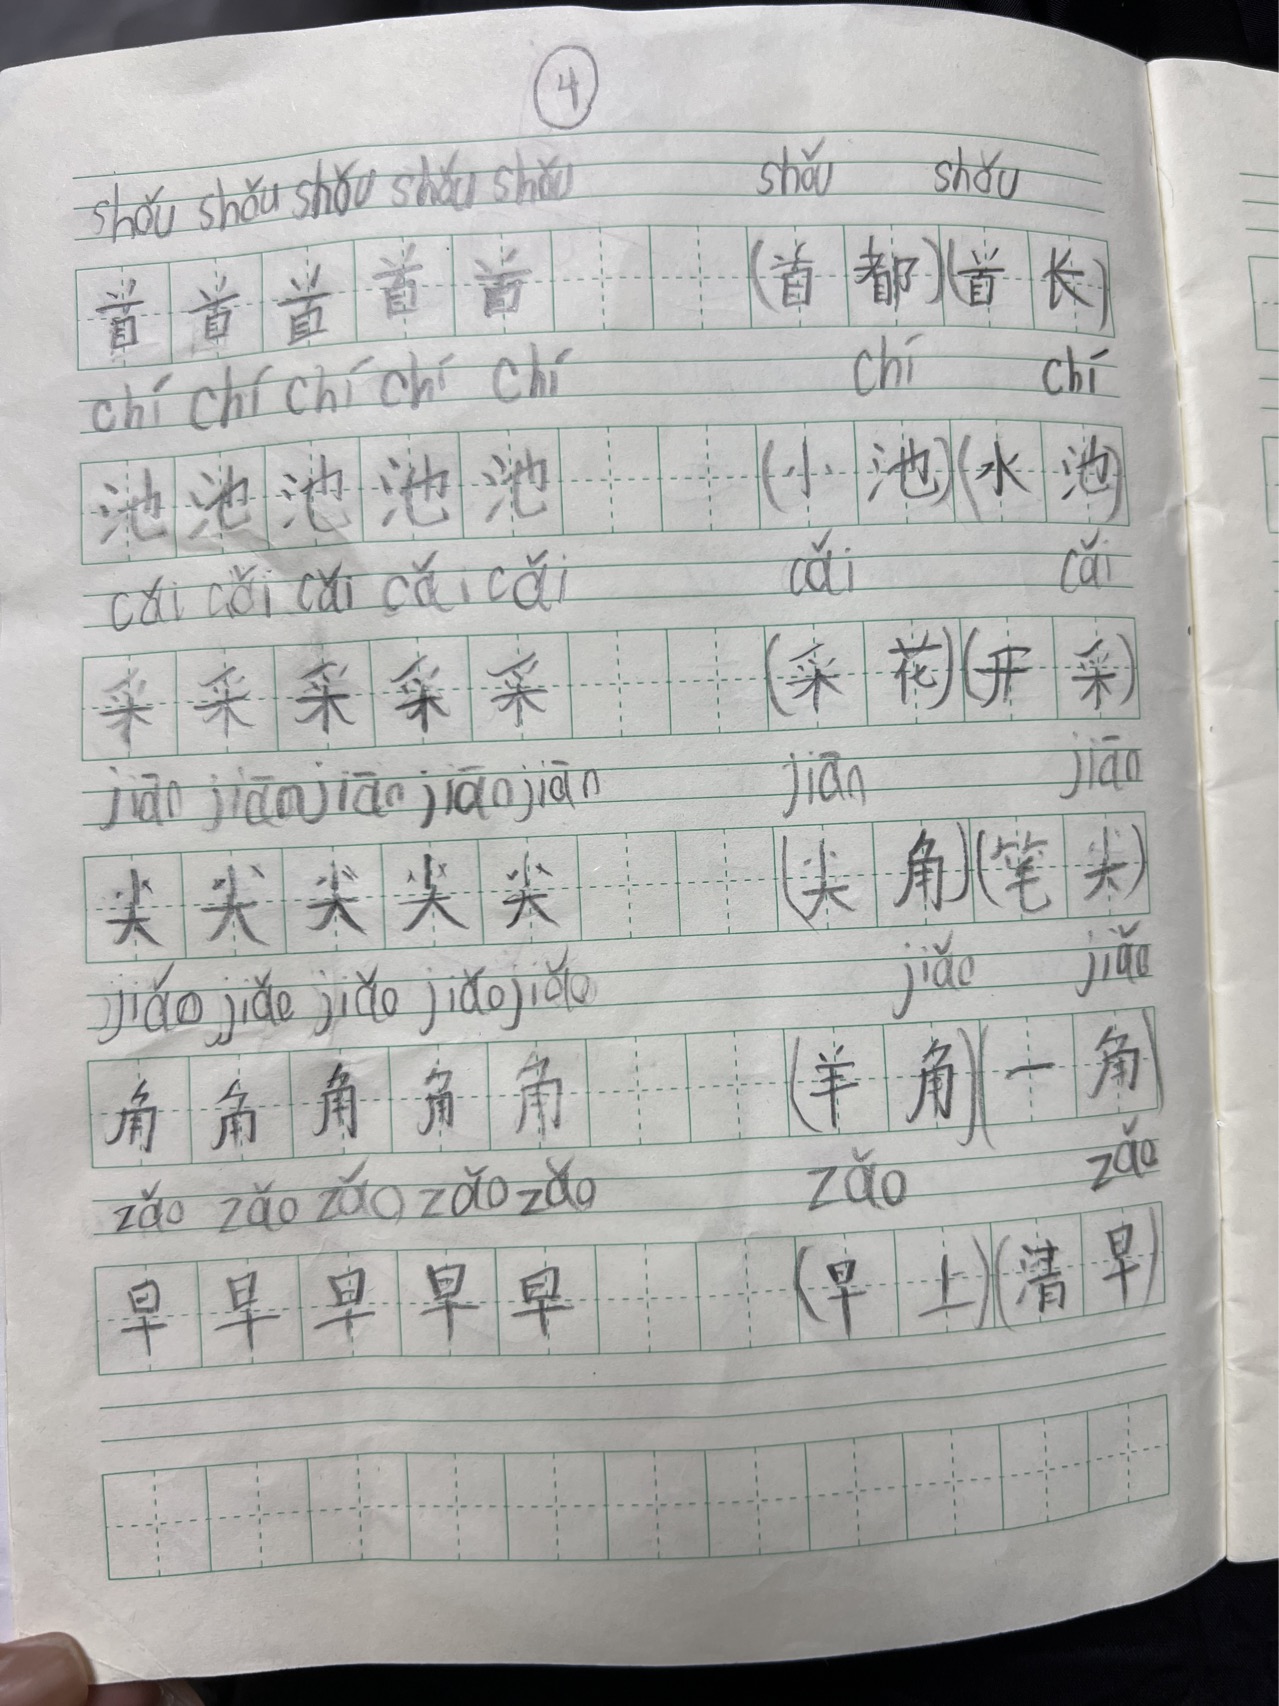 4
shǒu shǒu shǒu shǒu shǒu shǒu shǒu
首首首首首(首都)(首长)
chí chí chí chí chí chí chí
池池池池池(小池)(水池)
cǎi cǎi cǎi cǎi cǎi cǎi cǎi
采采采采采(采花)(开采)
jiān jiān jiān jiān jiān jiān jiān
尖尖尖尖尖(尖角)(笔尖)
jiǎo jiǎo jiǎo jiǎo jiǎo jiǎo jiǎo
角角角角角(羊角)(一角)
zǎo zǎo zǎo zǎo zǎo zǎo zǎo
早早早早早(早上)(清早)